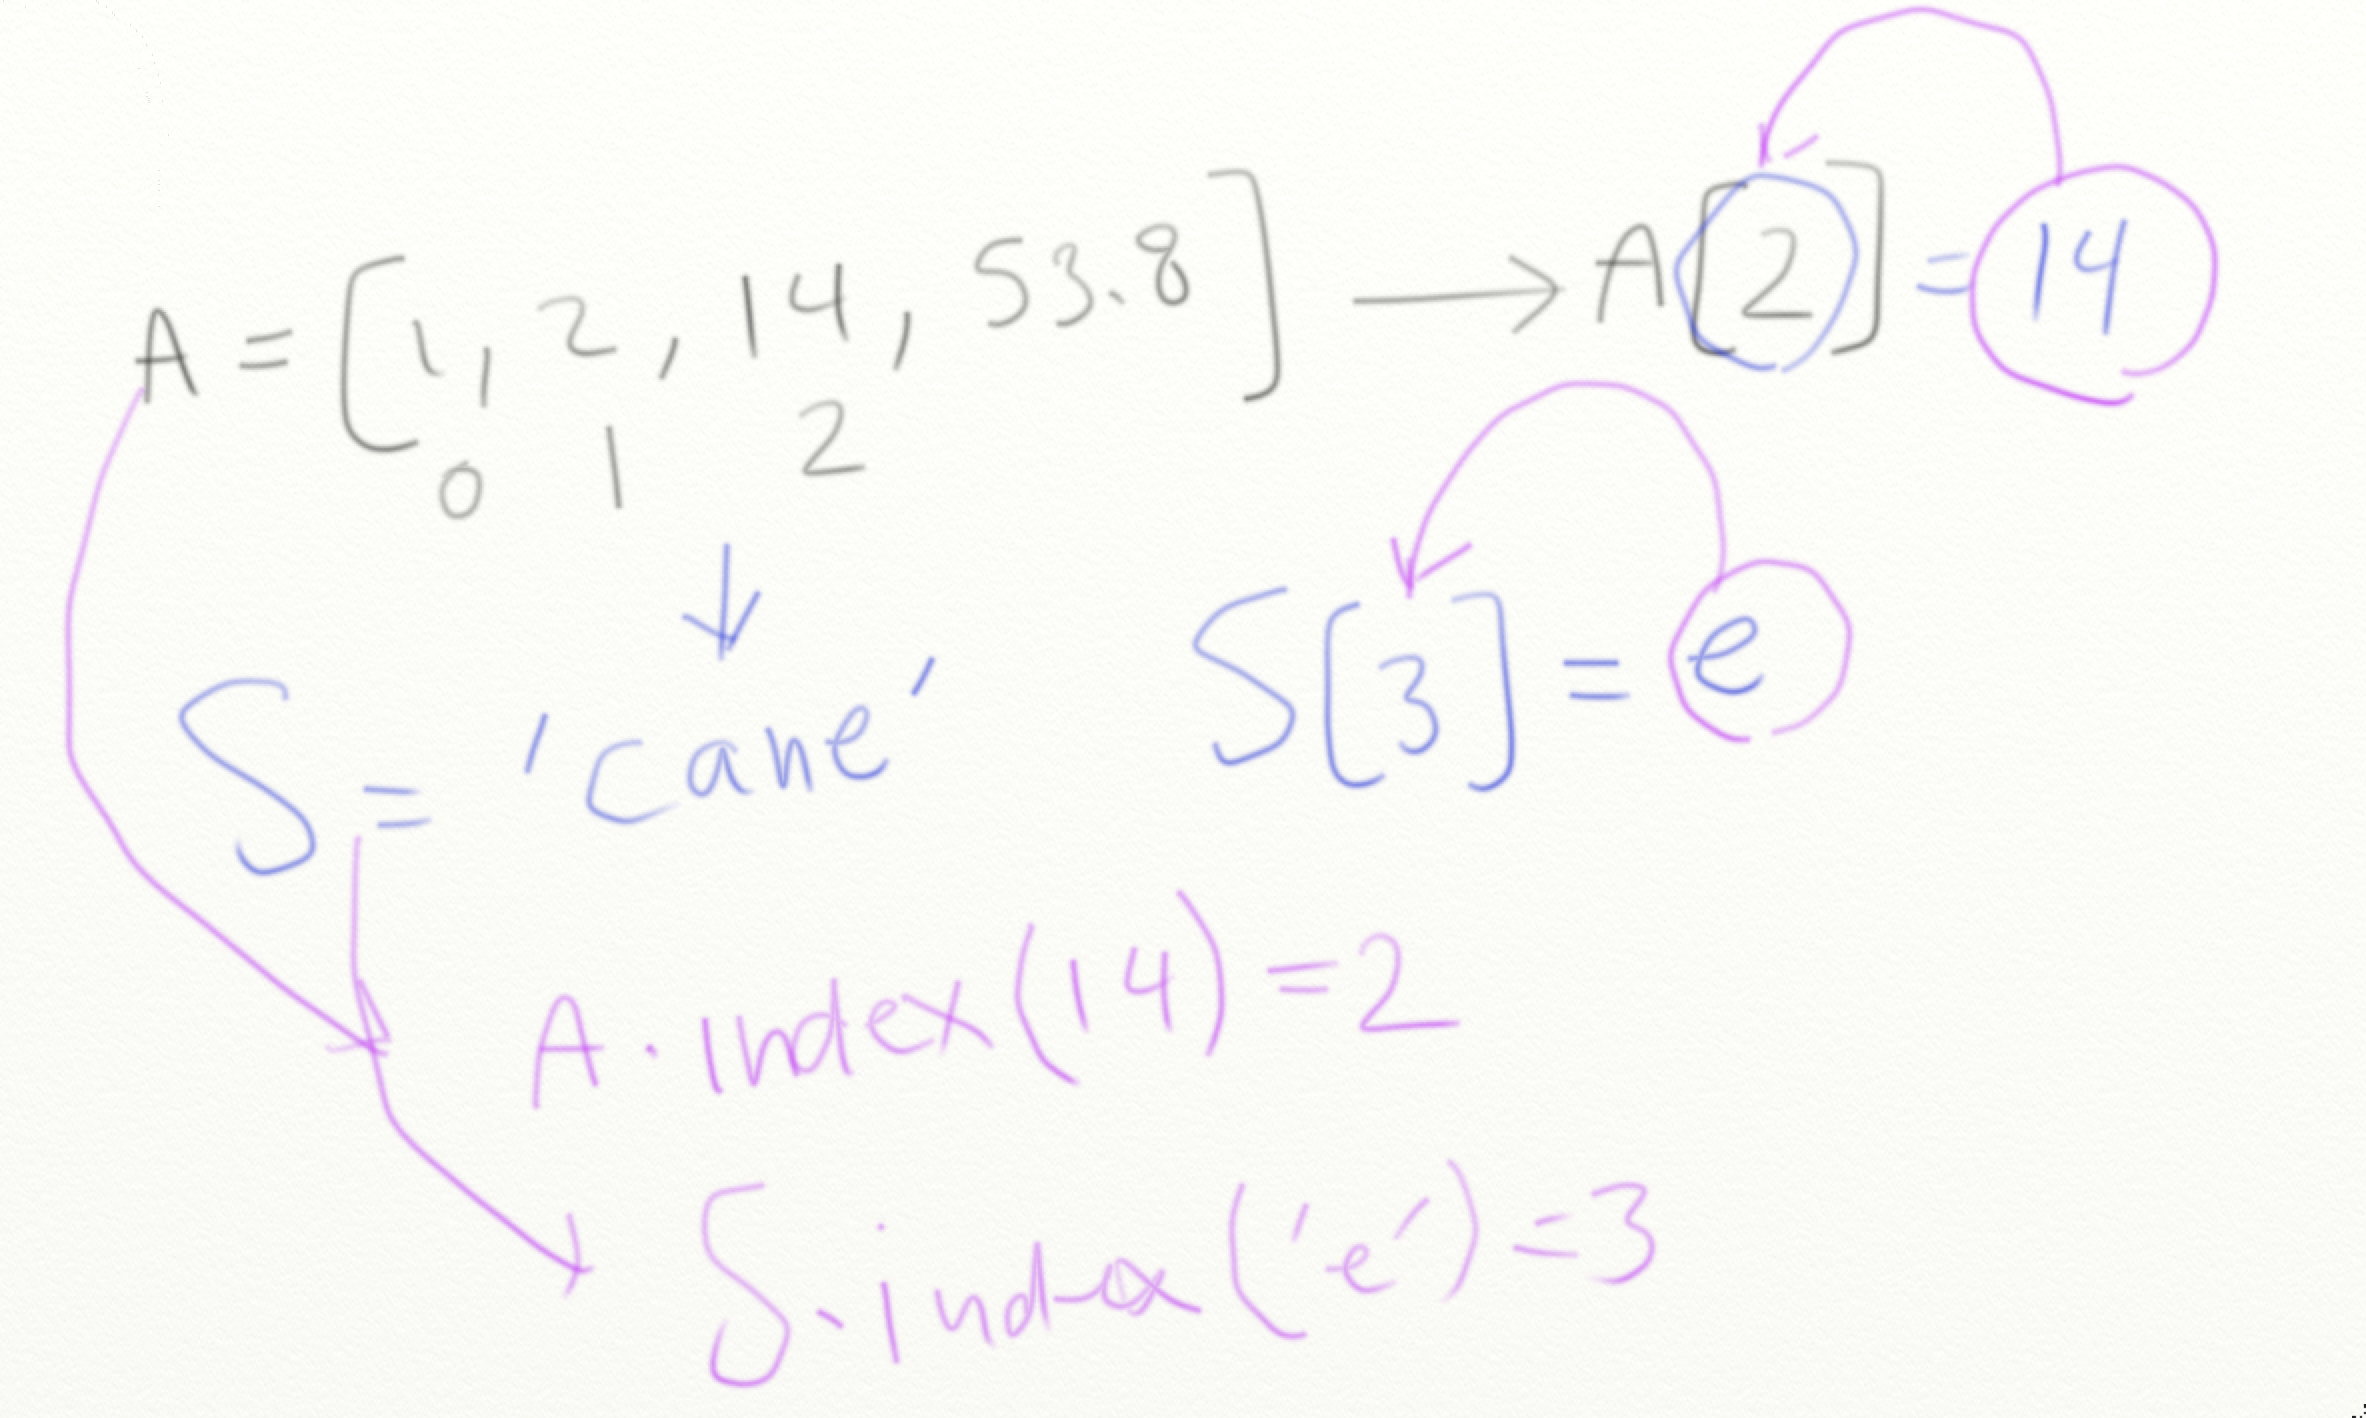 A = [1, 2, 14, 53.8] → A[2] = 14
0 1 2
S = 'cane' S[3] = e
A.index(14) = 2
S.index('e') = 3